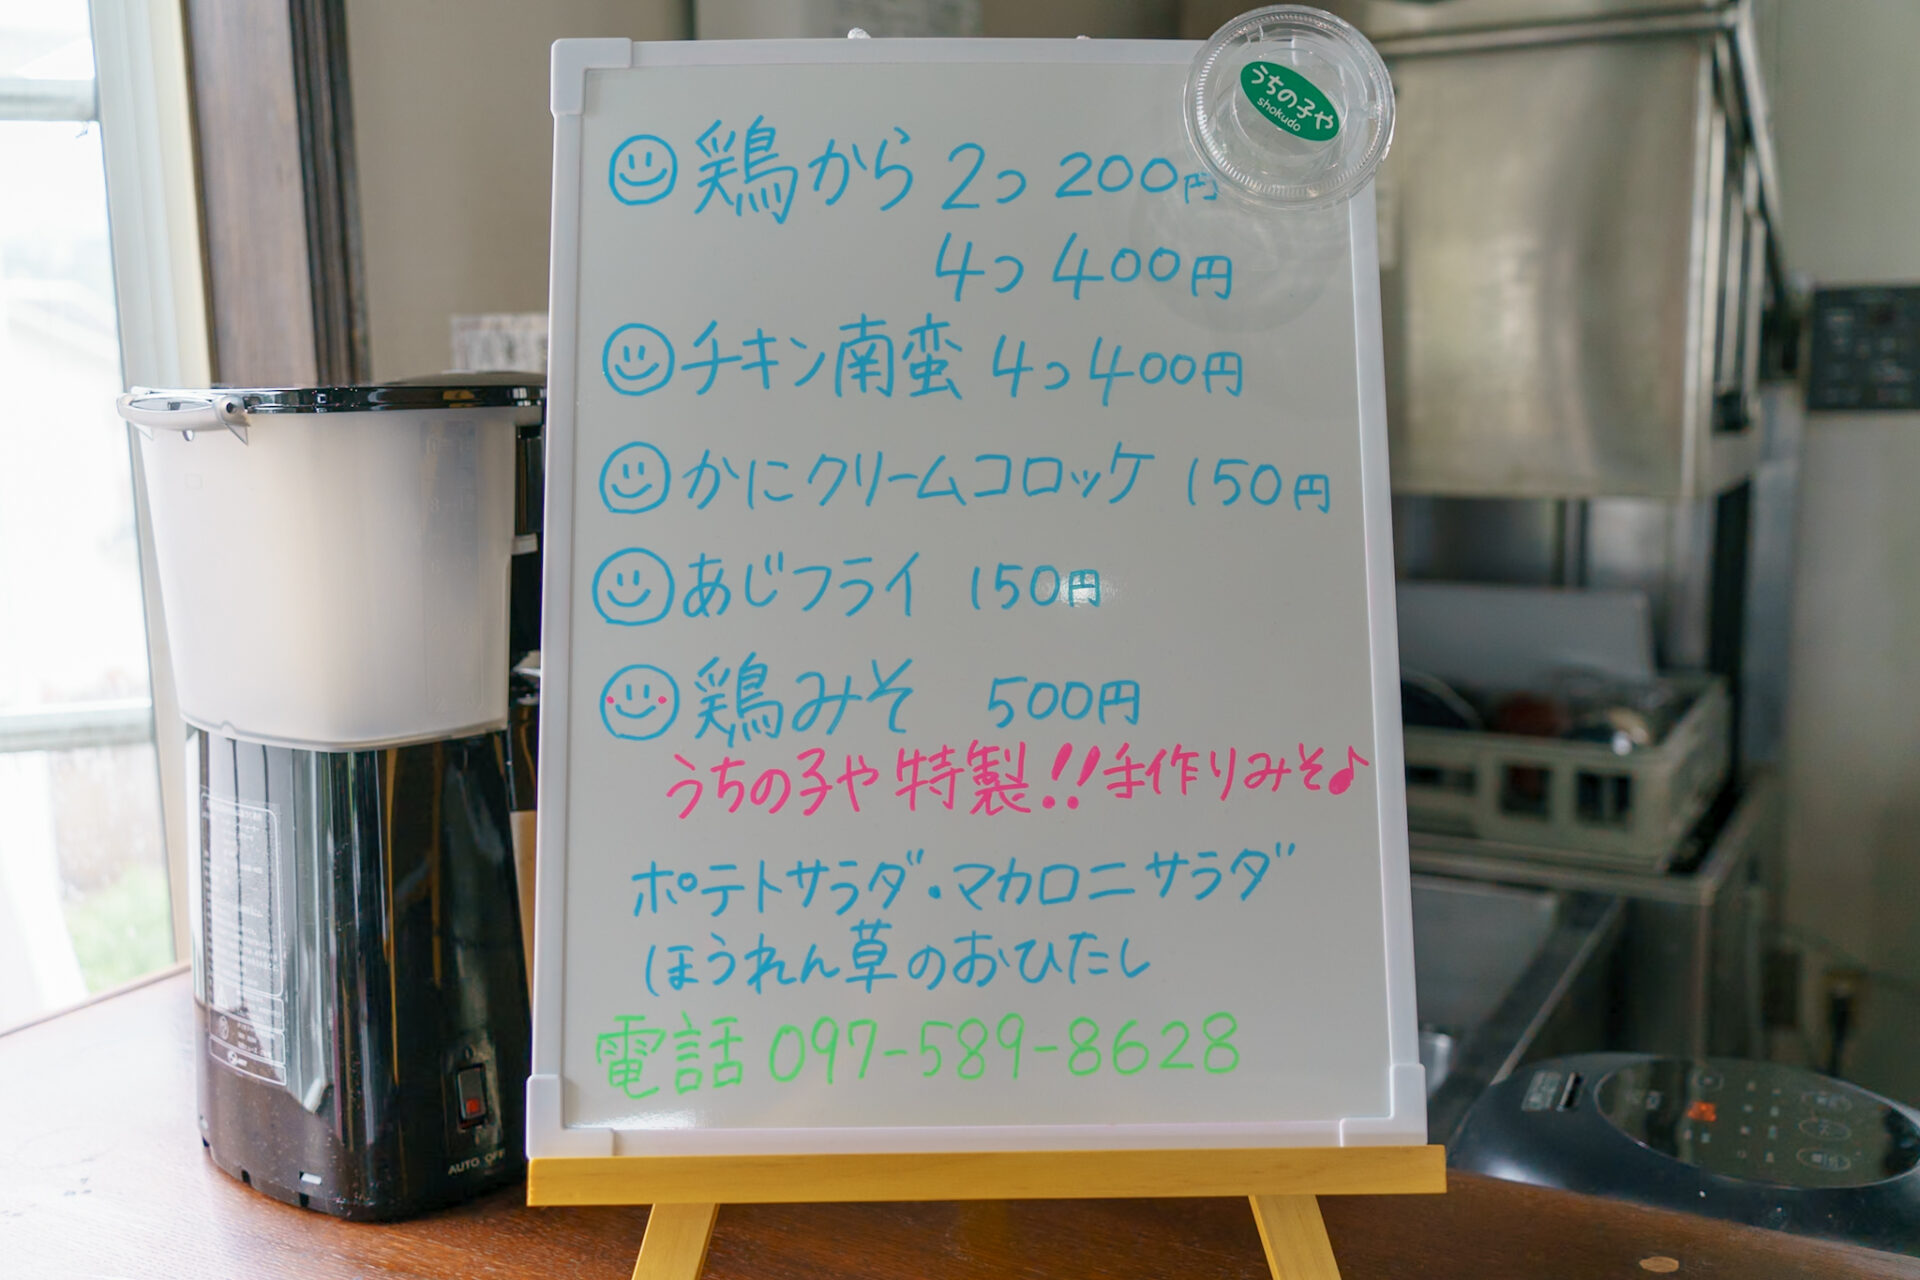 うちの子や
shokudo
鶏から 2つ 200円
4つ 400円
チキン南蛮 4つ 400円
かにクリームコロッケ 150円
あじフライ 150円
鶏みそ 500円
うちの子や特製!!手作りみそ♪
ポテトサラダ・マカロニサラダ
ほうれん草のおひたし
電話 097-589-8628
AUTO OFF